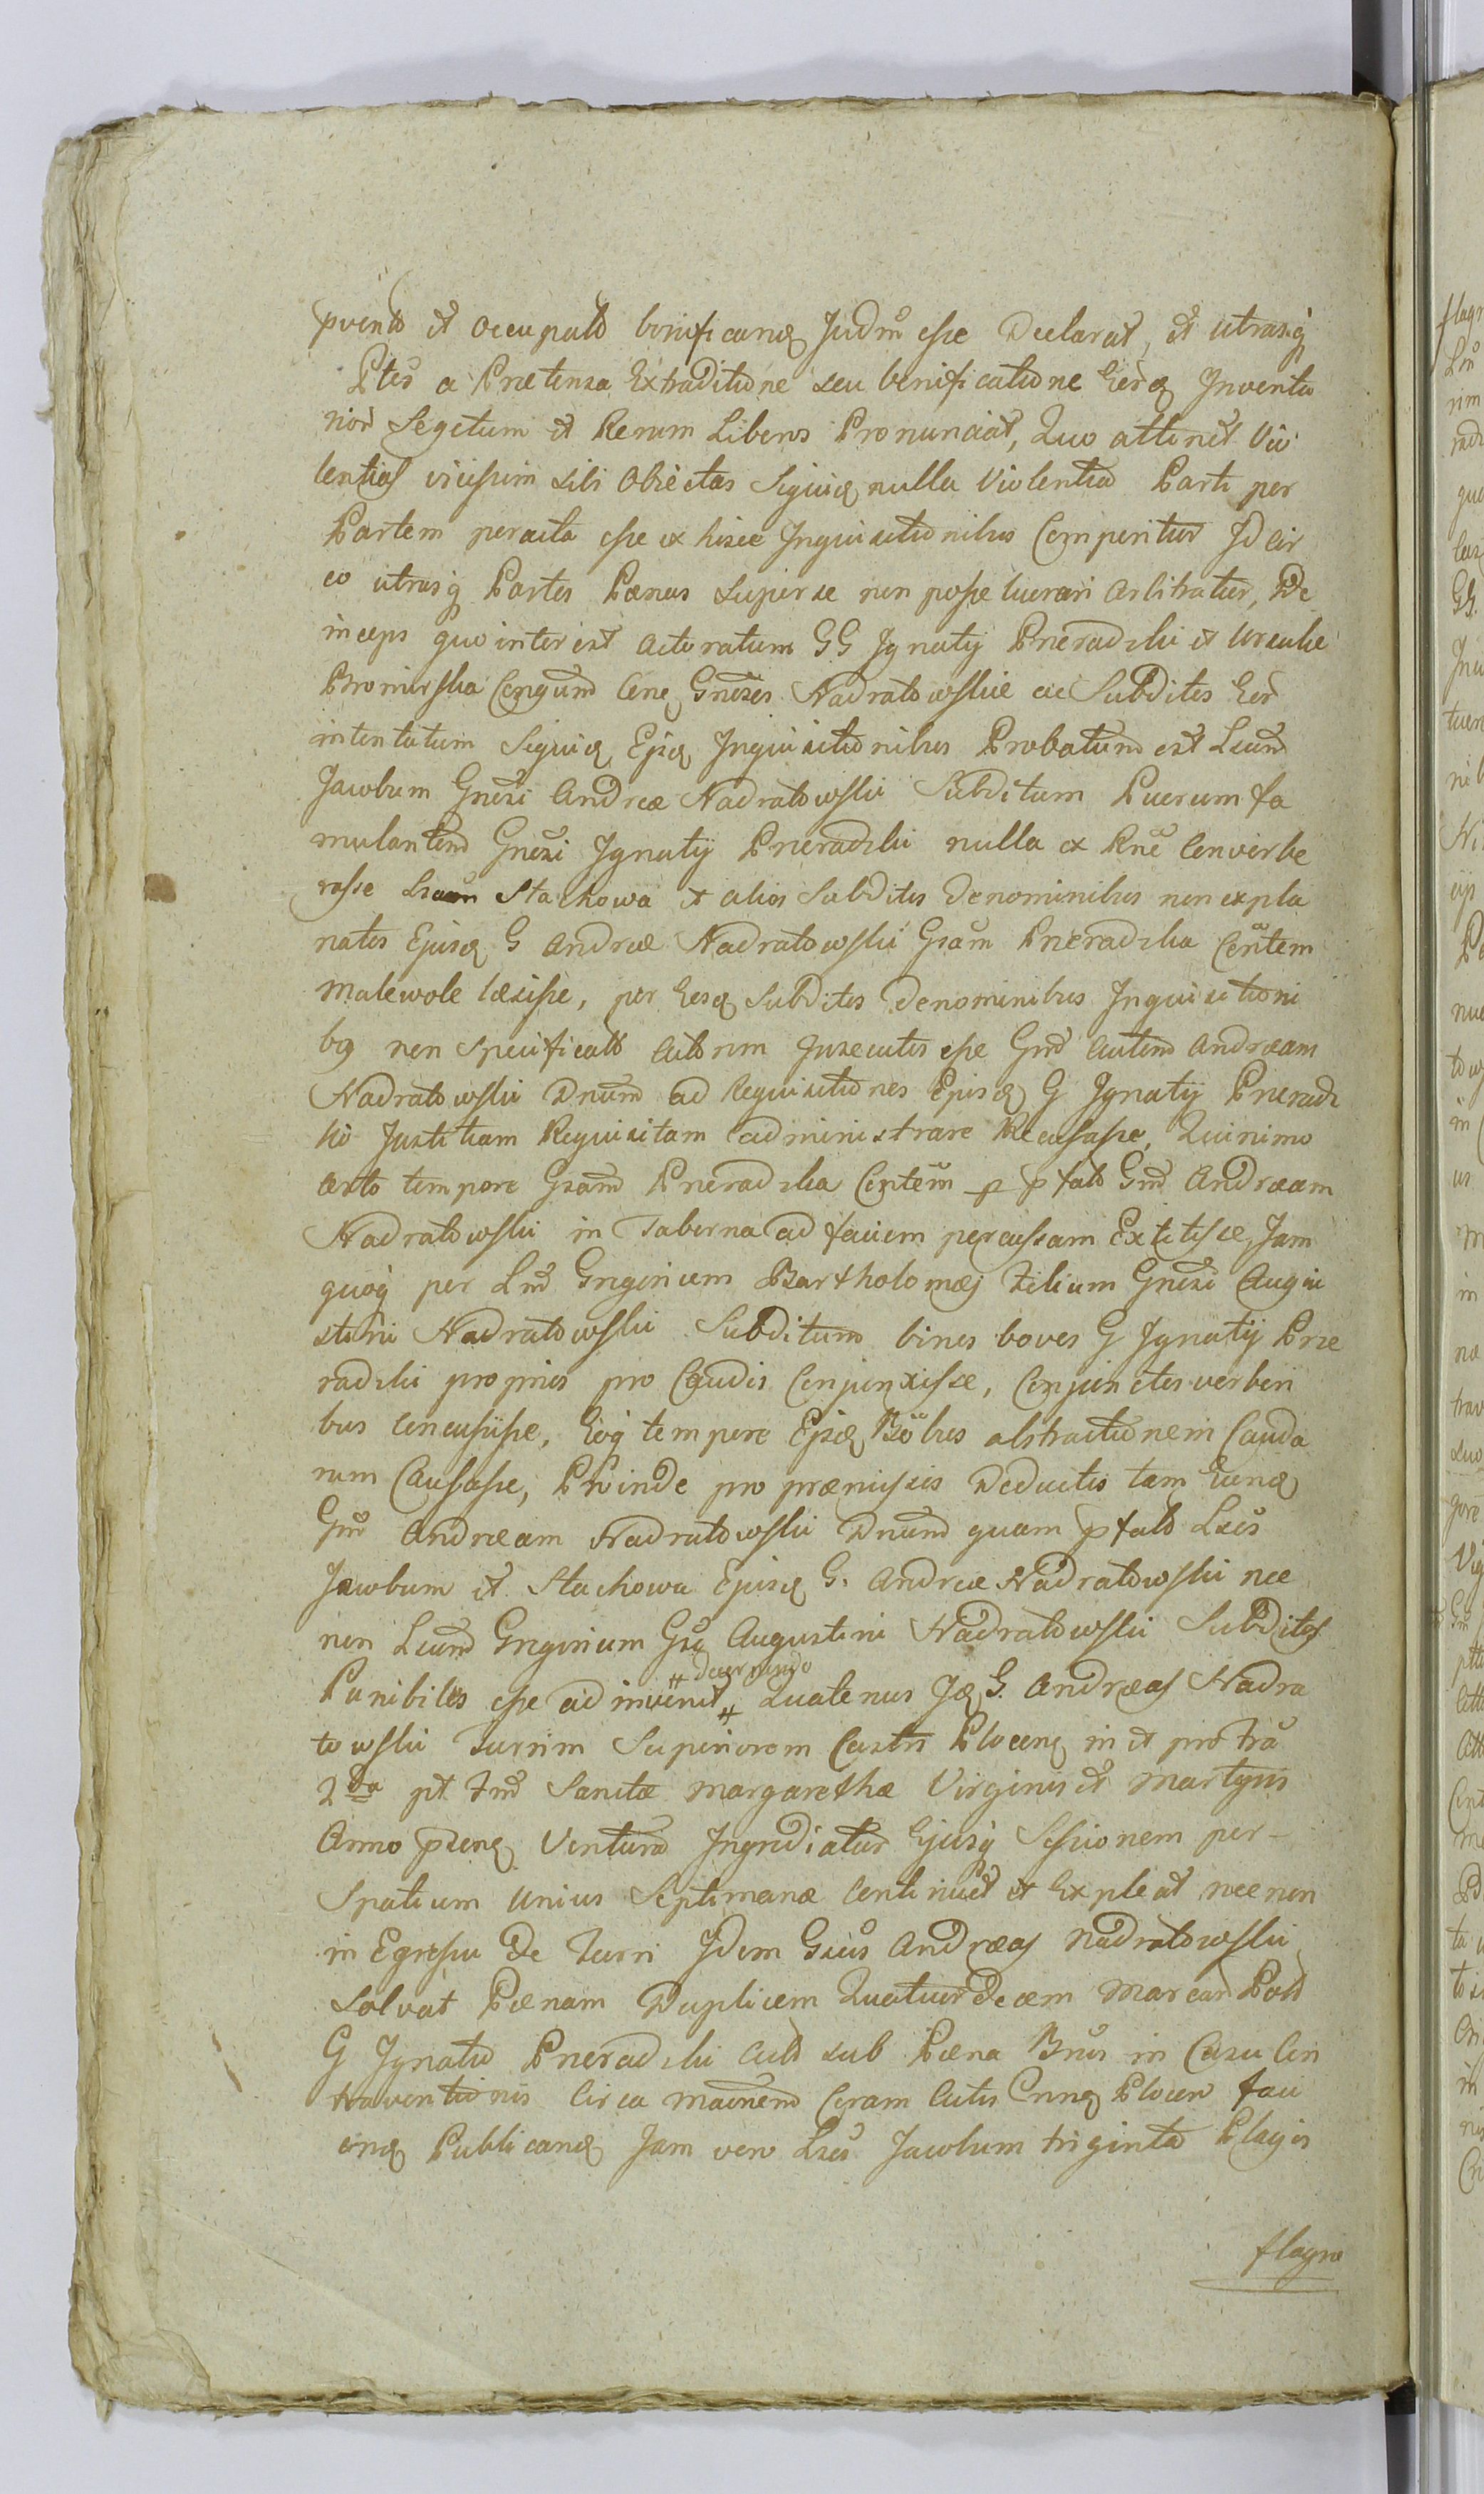 et occupato bonificand Judm esse Declarat, et utrasq
Ptes a Prætensa Extraditione seu bonificatione Eord Inventa
rior Segetum et Rerum Liberas Pronunciat, Quo attinet Vio
lentias vicissim sibi Objectas Siquid nulla Violentia Parti per
Partem peracta esse ex hisce Inquisitionibus Comperitur Idcir
co utrasq Partes Pænas super se non posse luerari arbitratur, De
inceps quo interest actoratum GG Ignatij Prieradzki et Ursulæ
Bromirska Conjugum Gnosos Nadratowskie ac Subditos Eor
intentatum Siquid Ejsd Inquisitionibus Probatum est Lum
Jacobum Gnosi Andreæ Nadratowski Subditum Puerum fa
mulantem Gnosi Ignatij Prieradzki nulla ex Rne Converbe
rasse Stachowa et alios Subditos de nominibus non expla
natos Ejusd G Andreæ Nadratowski Gsam Prieradzka Contem
malewole læsisse, per Eosd Subditos de nominibus Inquisitioni
bq non Specificato esse Gm autem Andræam
Nadratowski Dnum ad requisitiones Ejusd G Ignatij Prieradz
ki Justitiam Requisitam administrare Recusasse, Quinimo
certo tempore Gsam Prieradzka Contem p pfato Gm Andræam
Nadratowski in Taberna ad faciem percussam Extitisse, Jam
quoq per Lm Grigorium Bartholomæj Filium Gnosi Augu
stini Nadratowski Subditum binos boves G Ignatij Prie
radzki proprios pro Caudis Conjunxisse, Conjunctos verberi
bus Concussisse, Eoq tempore Ejsd Bobus abstractionem Cauda
rum Causasse, Proinde pro præmissis Deductis tam Eund
Gm Andræam Nadratowski Dnum quam pfato Lses
Jacobum et Stachowa Ejusd G. Andreæ Nadratowski nec
non Lum Grigorium Gsi Augustini Nadratowski Subditos
Punibiles esse ad invenit # decernendo # Quatenus Id G. Andræas Nadra
towski Turrim Superiorem Castri Plocens in et pro fra
2da pt Fm Sanctæ Margarethæ Virginis et Martyris
Anno pzens Venturo Ingrediatur Ejusq Sessionem per-
Spatium Unius Septimanæ Continuet et Expleat necnon
in Egressu De Turri Idem Gsus Andræas Nadratowski
Solvat Pœnam Duplicem Quatuordecem Marcar Pold
G Ignatio Prieradzki sub Pœna Bnis in Casu Con
traventionis Circa Coram Actis Plocen faci
end Publicand Jam vero Lses Jacobum triginta Plagis
flagra